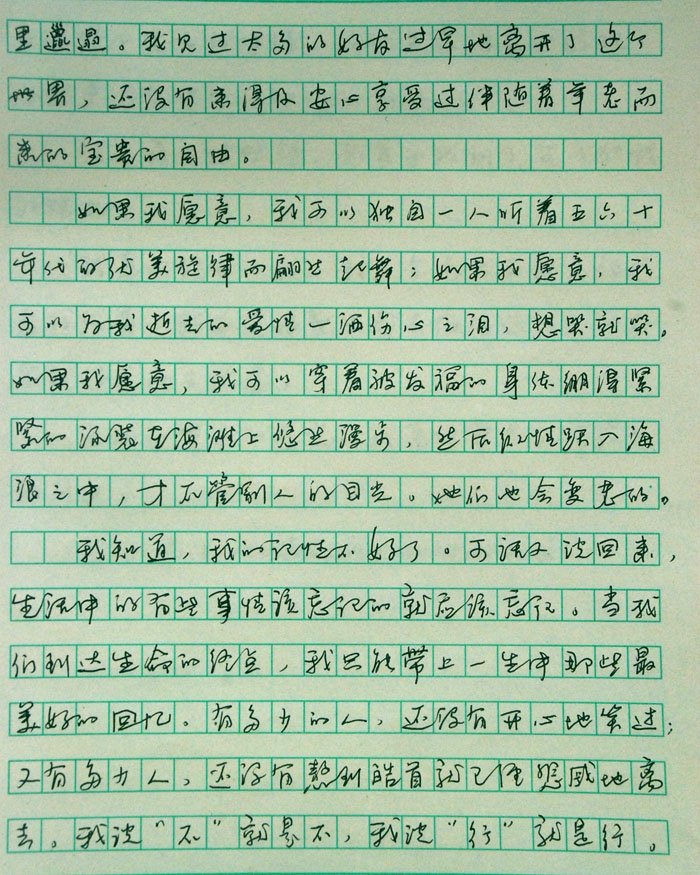 里邋遢。我见过太多的好友过早地离开了这个
世界，还没有来得及安心享受过伴随着年老而
来的宝贵的自由。
如果我愿意，我可以独自一人听着五六十
年代的优美旋律而翩然起舞；如果我愿意，我
可以为我逝去的爱情一洒伤心之泪，想哭就哭。
如果我愿意，我可以穿着被发福的身体绷得紧
紧的泳装在海滩上悠然漫步，然后纵情跃入海
浪之中，才不管别人的目光。她们也会变老的。
我知道，我的记性不好了。可话又说回来，
生活中的有些事情该忘记的就应该忘记。当我
们到达生命的终点，我只能带上一生中那些最
美好的回忆。有多少的人，还没有开心地笑过；
又有多少人，还没有熬到皓首就已经憾地离
去。我说“不”就是不，我说“行”就是行。